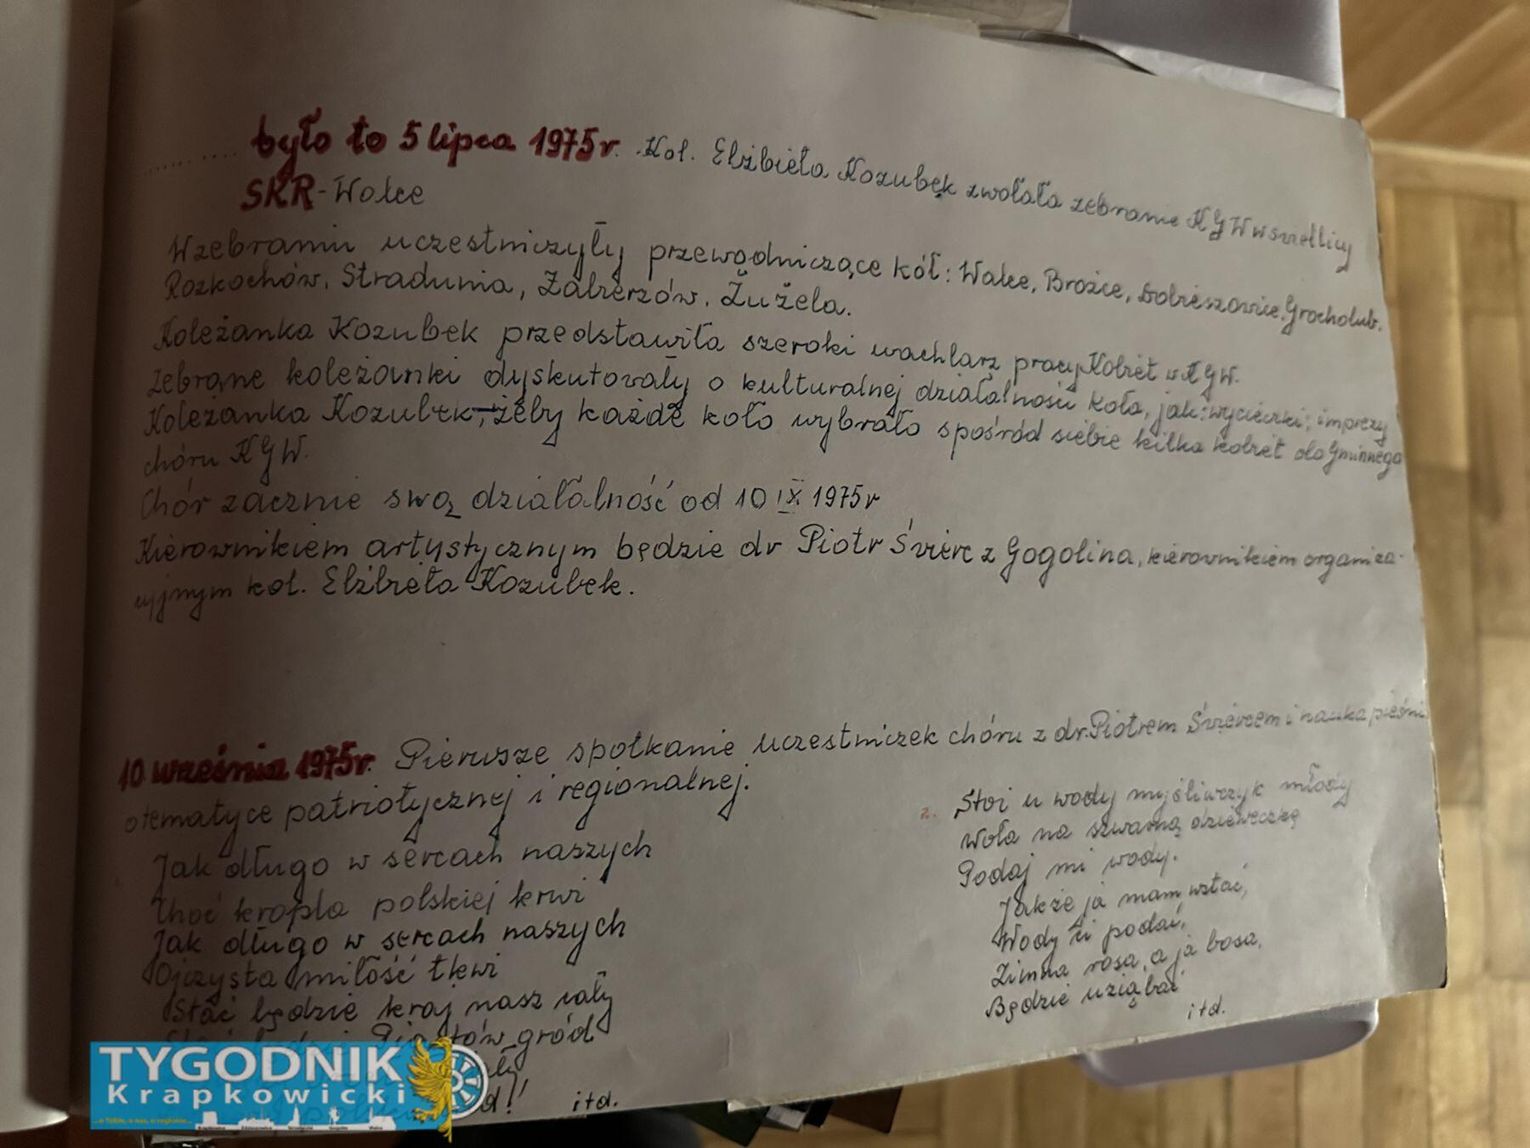 było to 5 lipca 1975r. Kol. Elżbieta Kozubek zwołała zebranie KGW w świetlicy
SKR-Walce
W zebraniu uczestniczyły przewodniczące kół: Walce, Brożec, Dobieszowice, Grocholub,
Rozkochów, Stradunia, Zabierzów, Żużela.
Koleżanka Kozubek przedstawiła szeroki wachlarz pracy Kobiet w KGW.
Zebrane koleżanki dyskutowały o kulturalnej działalności koła, jak: wycieczki, imprezy
Koleżanka Kozubek, żeby każde koło wybrało spośród siebie kilka kobiet do Gminnego
chóru KGW.
Chór zacznie swą działalność od 10 IX 1975r
Kierownikiem artystycznym będzie dr Piotr Świerc z Gogolina, kierownikiem organiza-
cyjnym kol. Elżbieta Kozubek.
10 września 1975r. Pierwsze spotkanie uczestniczek chóru z dr. Piotrem Świercem i nauka pieśni
o tematyce patriotycznej i regionalnej.
Jak długo w sercach naszych
Choć kropla polskiej krwi
Jak długo w sercach naszych
Ojczysta miłość tkwi
Stać będzie kraj nasz cały
gród
itd.
2. Stoi u wody myśliwczyk młody
Woła na szwarną dzieweczkę
Podaj mi wody.
Jakże ja mam wstać,
Wody ci podać,
Zimna rosa, a ja bosa,
Będzie uziąbać
itd.
TYGODNIK
Krapkowicki